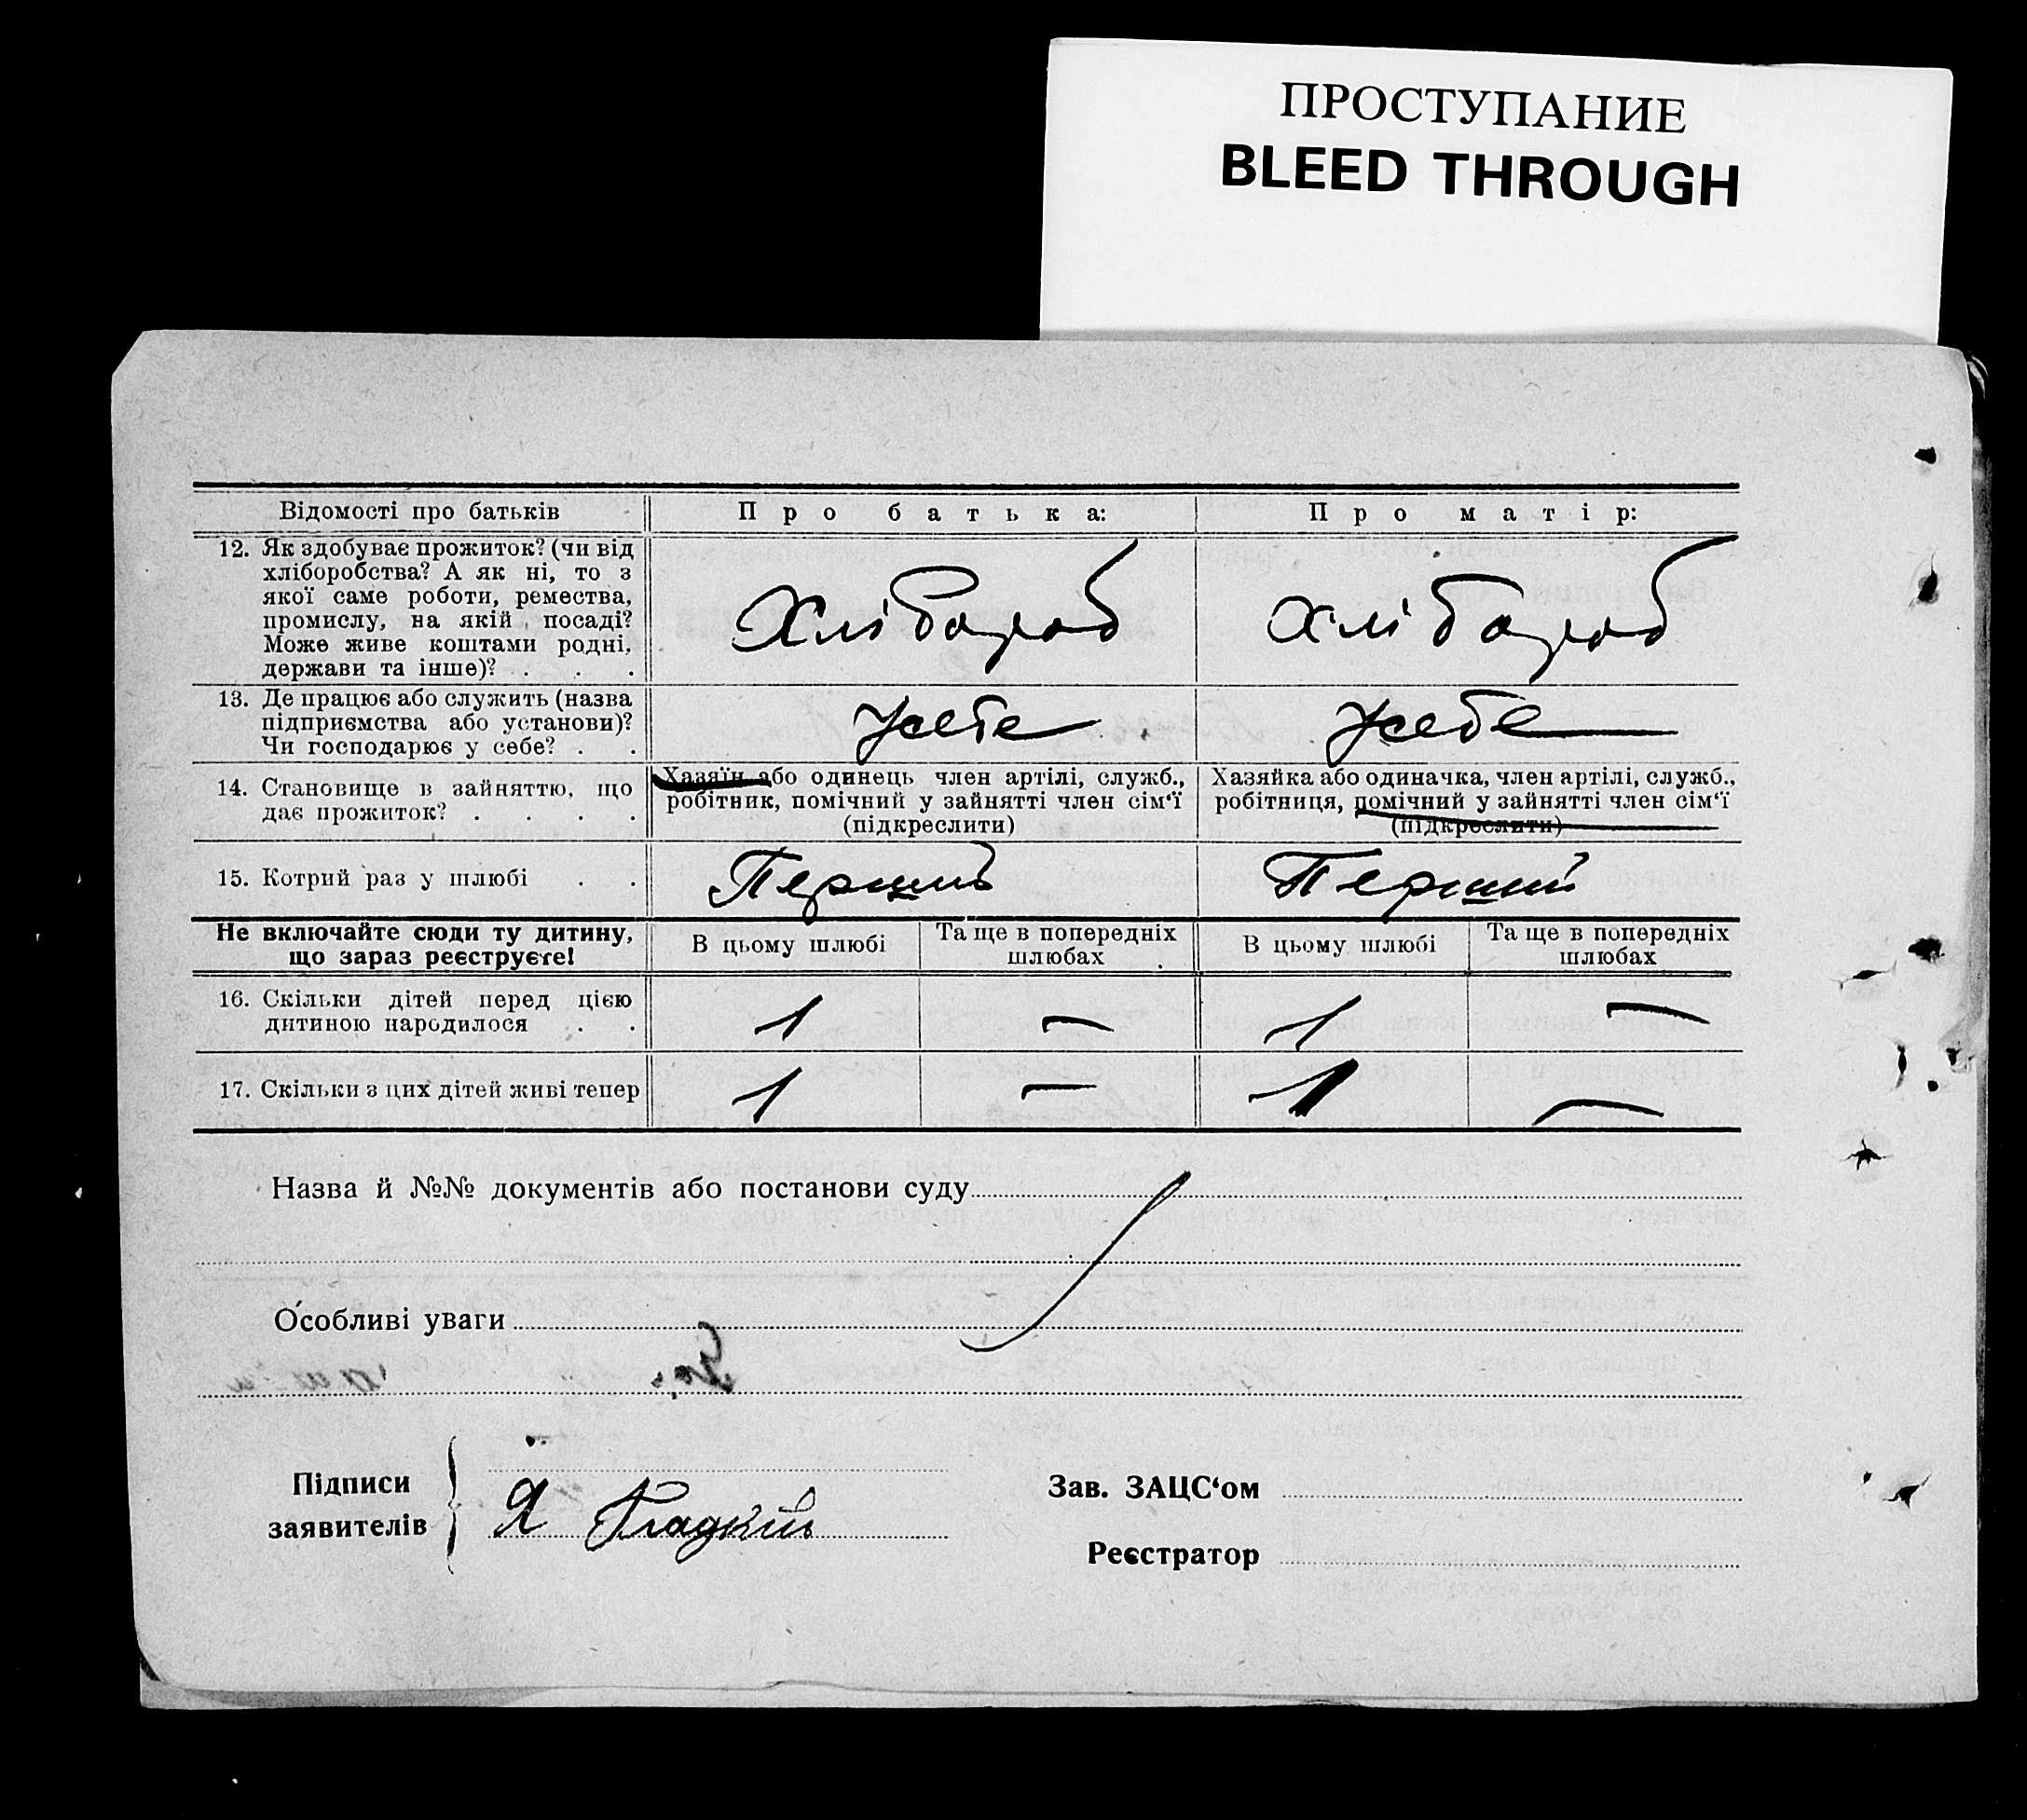 ПРОСТУПАНИЕ
BLEED THROUGH
Відомості про батьків
Про батька:
Про матір:
12. Як здобуває прожиток? (чи від
хліборобства? А як ні, то з
якої саме роботи, ремества,
промислу, на якій посаді?
Може живе коштами родні,
держави та інше)? . . .
Хлібороб
Хлібороб
13. Де працює або служить (назва
підприємства або установи)?
Чи господарює у себе? . .
у себе
у себе
14. Становище в зайняттю, що
дає прожиток? . . . .
Хазяїн або одинець член артілі, служб.,
робітник, помічний у зайнятті член сім‘ї
(підкреслити)
Хазяйка або одиначка, член артілі, служб.,
робітниця, помічний у зайнятті член сім‘ї
(підкреслити)
15. Котрий раз у шлюбі . .
Перший
Перший
Не включайте сюди ту дитину,
що зараз реєструєте!
В цьому шлюбі
Та ще в попередніх
шлюбах
В цьому шлюбі
Та ще в попередніх
шлюбах
16. Скільки дітей перед цією
дитиною народилося . .
1 — 1 —
17. Скільки з цих дітей живі тепер
1 — 1 —
Назва й №№ документів або постанови суду
Особливі уваги
Підписи
заявителів
Я Гладкий
Зав. ЗАЦС‘ом
Реєстратор